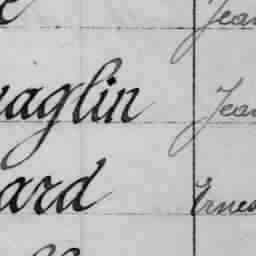 Jean
vaglin Jean
ard Ernes